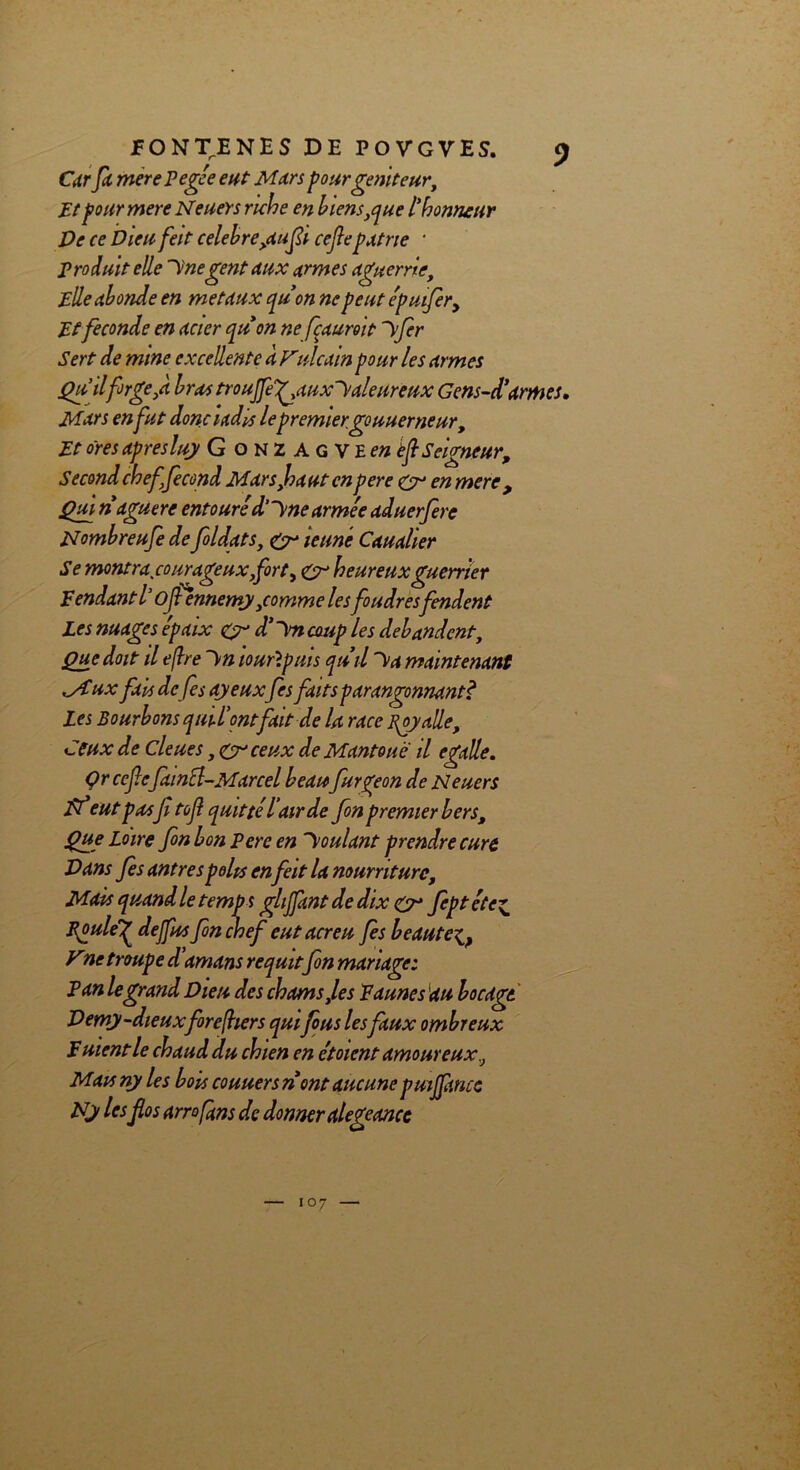 FONTENES DE POVGVES. 9
Car ſa mere Pegée eut Mars pour geniteur,
Et pour mere Neuers riche en biens, que l'honneur
De ce Dieu feit celebre, außi ceſte patrie
Produit elle vne gent aux armes aguerrie,
Elle abonde en metaux qu'on ne peut épuiſer,
Et feconde en acier qu'on ne ſçauroit vſer
Sert de mine excellente à Vulcain pour les armes
Qu'il forge, à bras trouſſez, aux valeureux Gens-d'armes.
Mars en fut donc iadis le premier gouuerneur,
Et ores apres luy GONZAGVE en eſt Seigneur,
Second chef, ſecond Mars, haut en pere & en mere,
Qui n'aguere entouré d'vne armée aduerſere
Nombreuſe de ſoldats, & ieune Caualier
Se montra, courageux, fort, & heureux guerrier
Fendant l'Oſt ennemy, comme les foudres fendent
Les nuages épaix & d'vn coup les debandent,
Que doit il eſtre vn iour? puis qu'il va maintenant
Aux fais de ſes ayeux ſes faits parangonnant?
Les Bourbons qui l'ont fait de la race Royalle,
Ceux de Cleues, & ceux de Mantoue il egalle.
Or ceſte ſainct-Marcel beau ſurgeon de Neuers
N'eut pas ſi toſt quitté l'air de ſon premier bers,
Que Loire ſon bon Pere en voulant prendre cure
Dans ſes antres polis en feit la nourriture,
Mais quand le temps gliſſant de dix & ſept étez
Roulez deſſus ſon chef eut acreu ſes beautez,
Vne troupe d'amans requit ſon mariage:
Pan le grand Dieu des chams, les Faunes au bocage
Demy-dieux foreſtiers qui ſous les faux ombreux
Fuient le chaud du chien en étoient amoureux,
Mais ny les bois couuers n'ont aucune puiſſance
Ny les flos arroſans de donner alegeance
— 107 —